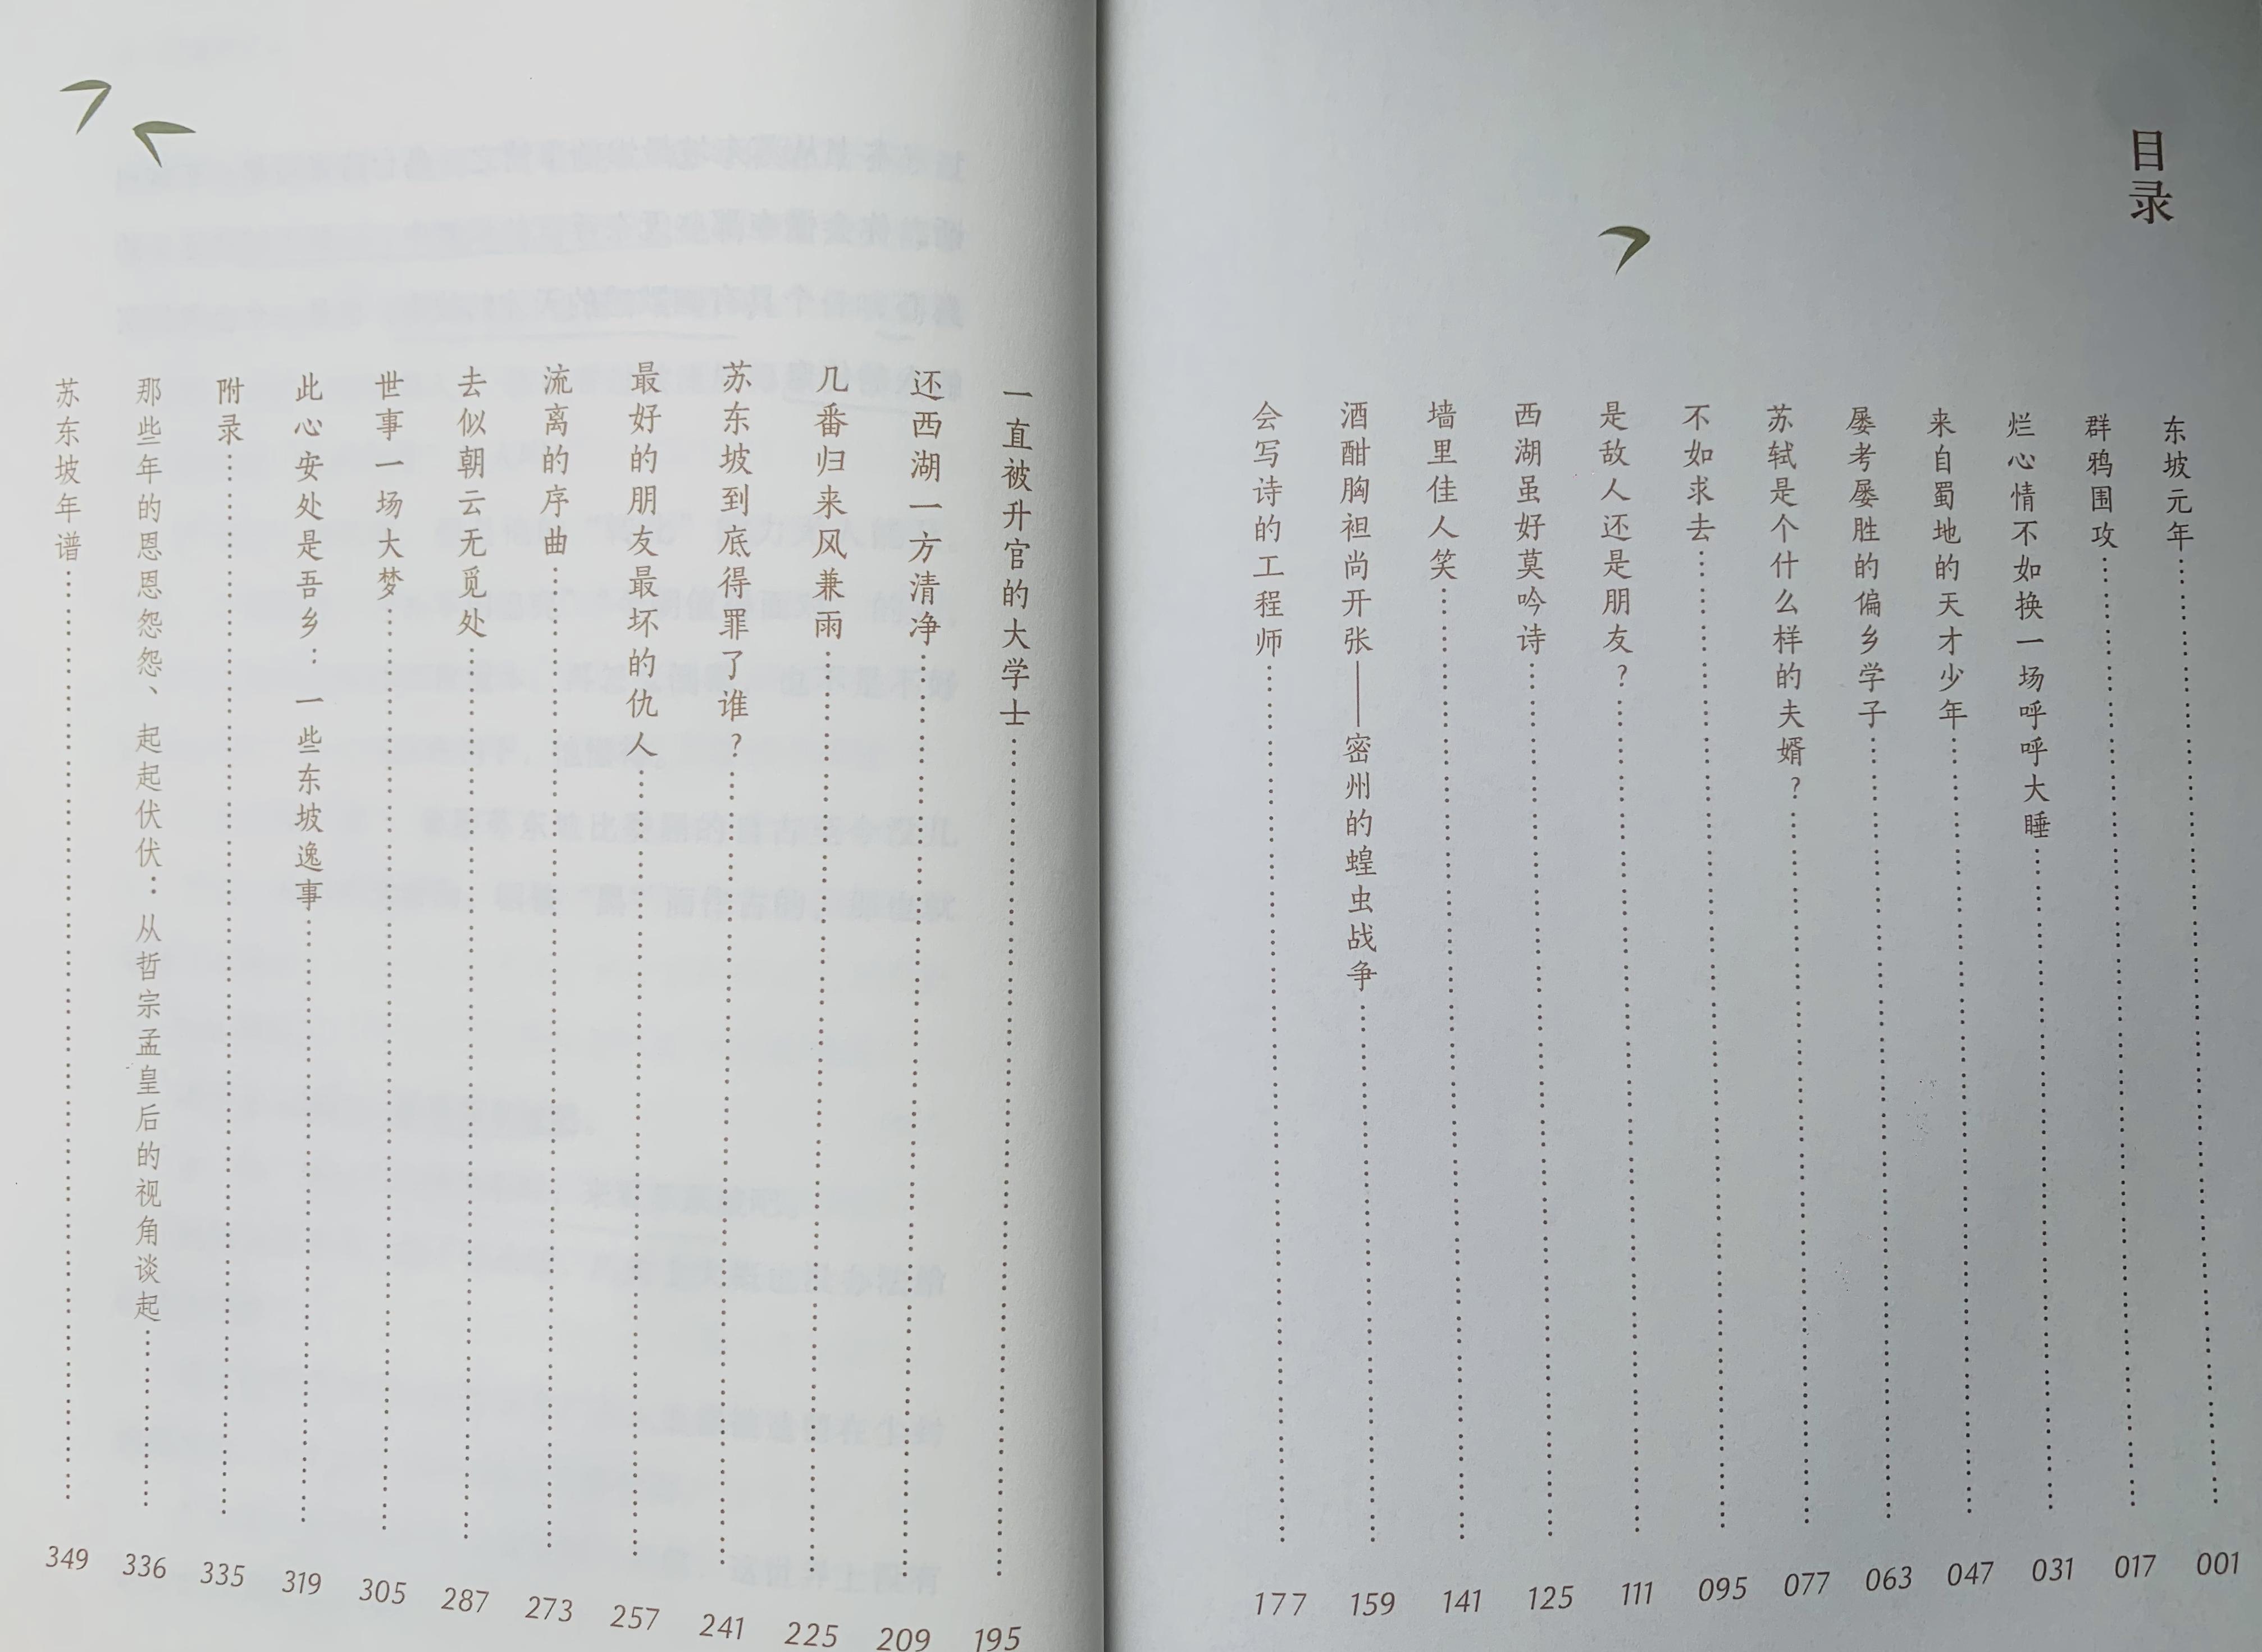 目录
东坡元年 001
群鸦围攻 017
烂心情不如换一场呼呼大睡 031
来自蜀地的天才少年 047
屡考屡胜的偏乡学子 063
苏轼是个什么样的夫婿? 077
不如求去 095
是敌人还是朋友? 111
西湖虽好莫吟诗 125
墙里佳人笑 141
酒酣胸袒尚开张——密州的蝗虫战争 159
会写诗的工程师 177
一直被升官的大学士 195
还西湖一方清净 209
几番归来风兼雨 225
苏东坡到底得罪了谁? 241
最好的朋友最坏的仇人 257
流离的序曲 273
去似朝云无觅处 287
世事一场大梦 305
此心安处是吾乡：一些东坡逸事 319
附录 335
那些年的恩恩怨怨、起起伏伏：从哲宗孟皇后的视角谈起 336
苏东坡年谱 349